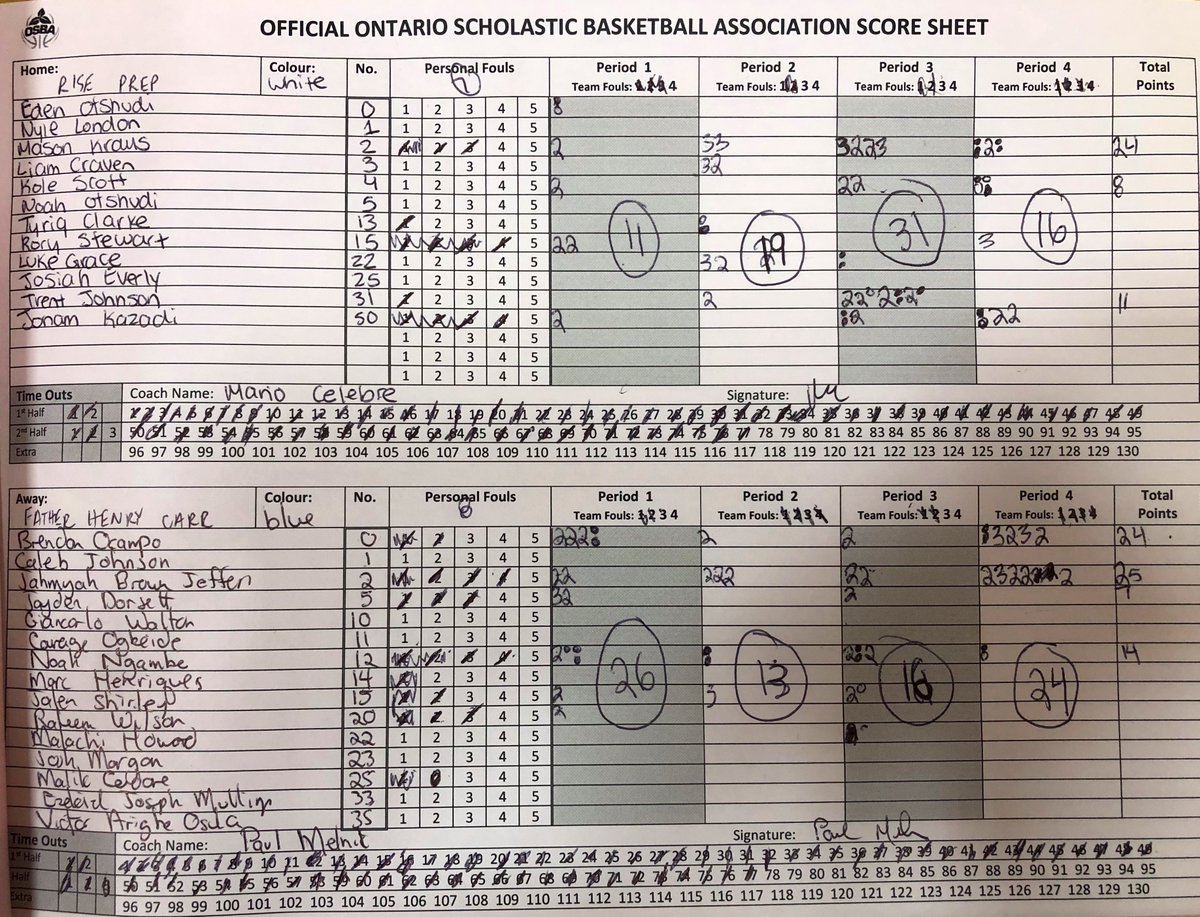 OSBA
OFFICIAL ONTARIO SCHOLASTIC BASKETBALL ASSOCIATION SCORE SHEET
Home: RISE PREP Colour: White No. Personal Fouls Period 1 Period 2 Period 3 Period 4 Total Points
Team Fouls: 1 2 3 4 Team Fouls: 1 2 3 4 Team Fouls: 1 2 3 4 Team Fouls: 1 2 3 4
Eden Otshudi 0 1 2 3 4 5
Nyle London 1 1 2 3 4 5
Mason Kraus 2 4 5 2 33 3223 24
Liam Craven 3 1 2 3 4 5 32
Kole Scott 4 1 2 3 4 5 2 22 8
Noah Otshudi 5 1 2 3 4 5
Tyriq Clarke 13 2 3 4 5
Rory Stewart 15 5 22 11 19 31 3 16
Luke Grace 22 1 2 3 4 5 32
Josiah Everly 25 1 2 3 4 5
Trent Johnson 31 2 3 4 5 2 11
Jonam Kazadi 50 5 2 22
1 2 3 4 5
1 2 3 4 5
1 2 3 4 5
Time Outs Coach Name: Mario Celebre Signature:
1st Half 1 2 1 2 3 4 5 6 7 8 9 10 11 12 13 14 15 16 17 18 19 20 21 22 23 24 25 26 27 28 29 30 31 32 33 34 35 36 37 38 39 40 41 42 43 44 45 46 47 48 49
2nd Half 1 2 3 50 51 52 53 54 55 56 57 58 59 60 61 62 63 64 65 66 67 68 69 70 71 72 73 74 75 76 77 78 79 80 81 82 83 84 85 86 87 88 89 90 91 92 93 94 95
Extra 96 97 98 99 100 101 102 103 104 105 106 107 108 109 110 111 112 113 114 115 116 117 118 119 120 121 122 123 124 125 126 127 128 129 130
Away: FATHER HENRY CARR Colour: blue No. Personal Fouls Period 1 Period 2 Period 3 Period 4 Total Points
Team Fouls: 1 2 3 4 Team Fouls: 1 2 3 4 Team Fouls: 1 2 3 4 Team Fouls: 1 2 3 4
Brendan Ocampo 0 3 4 5 222 2 2 3232 24
Caleb Johnson 1 1 2 3 4 5
Jahmyah Brown Jeffers 2 5 22 222 22 25
Jayden Dorsett 5 4 5 32 2 7
Giancarlo Walton 10 1 2 3 4 5
11 1 2 3 4 5
Noah Ngambe 12 5 14
Marc Henriques 14 2 3 4 5 26 13 16 24
Jalen Shirley 15 3 4 5 2 3
Wilson 20 4 5 2
Malachi Howard 22 1 2 3 4 5
Josh Morgan 23 1 2 3 4 5
Malik 25 3 4 5
33 1 2 3 4 5
Victor Osula 35 1 2 3 4 5
Time Outs Coach Name: Paul Melnik Signature: Paul
1st Half 1 2 1 2 3 4 5 6 7 8 9 10 11 12 13 14 15 16 17 18 19 20 21 22 23 24 25 26 27 28 29 30 31 32 33 34 35 36 37 38 39 40 41 42 43 44 45 46 47 48 49
Half 1 2 3 50 51 52 53 54 55 56 57 58 59 60 61 62 63 64 65 66 67 68 69 70 71 72 73 74 75 76 77 78 79 80 81 82 83 84 85 86 87 88 89 90 91 92 93 94 95
Extra 96 97 98 99 100 101 102 103 104 105 106 107 108 109 110 111 112 113 114 115 116 117 118 119 120 121 122 123 124 125 126 127 128 129 130